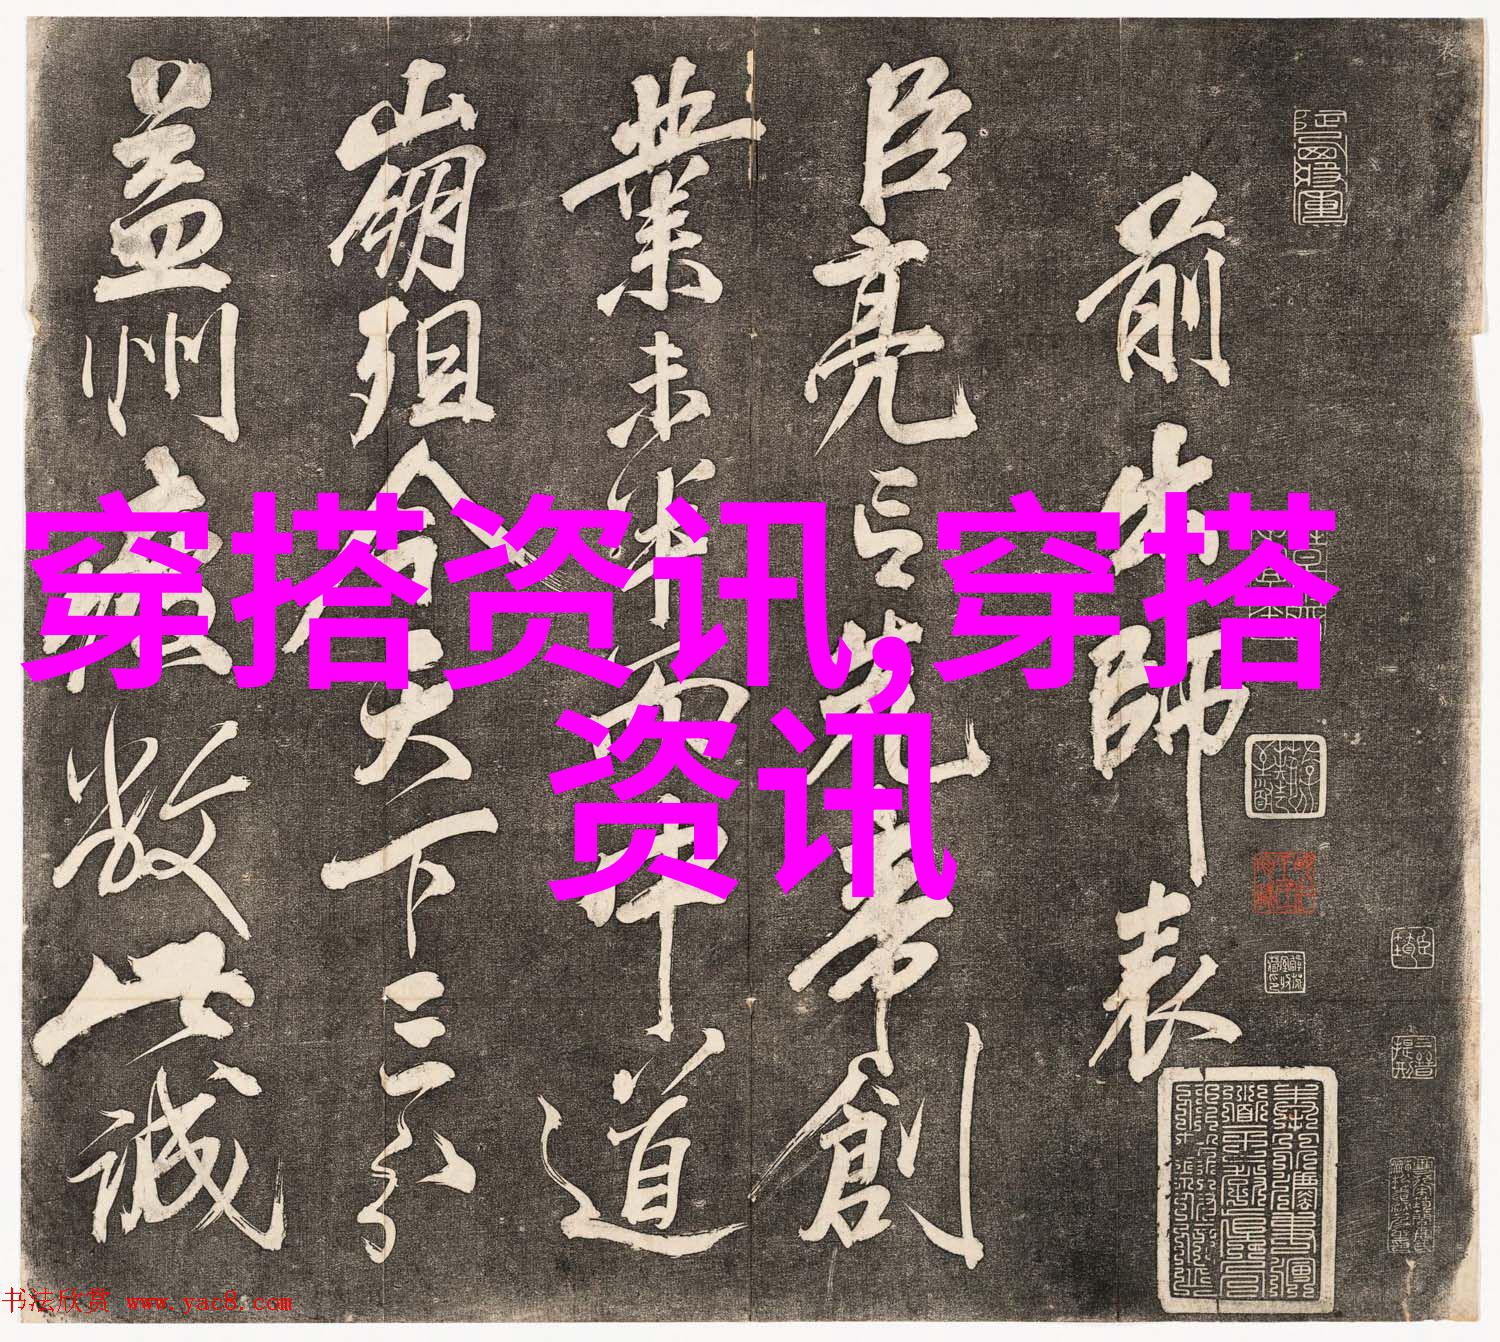 前出師表
臣亮言先帝創
業未半而中道
崩殂今天下三分
益州疲敝此誠
穿搭资讯,穿搭
资讯
书法欣赏 www.yac8.com